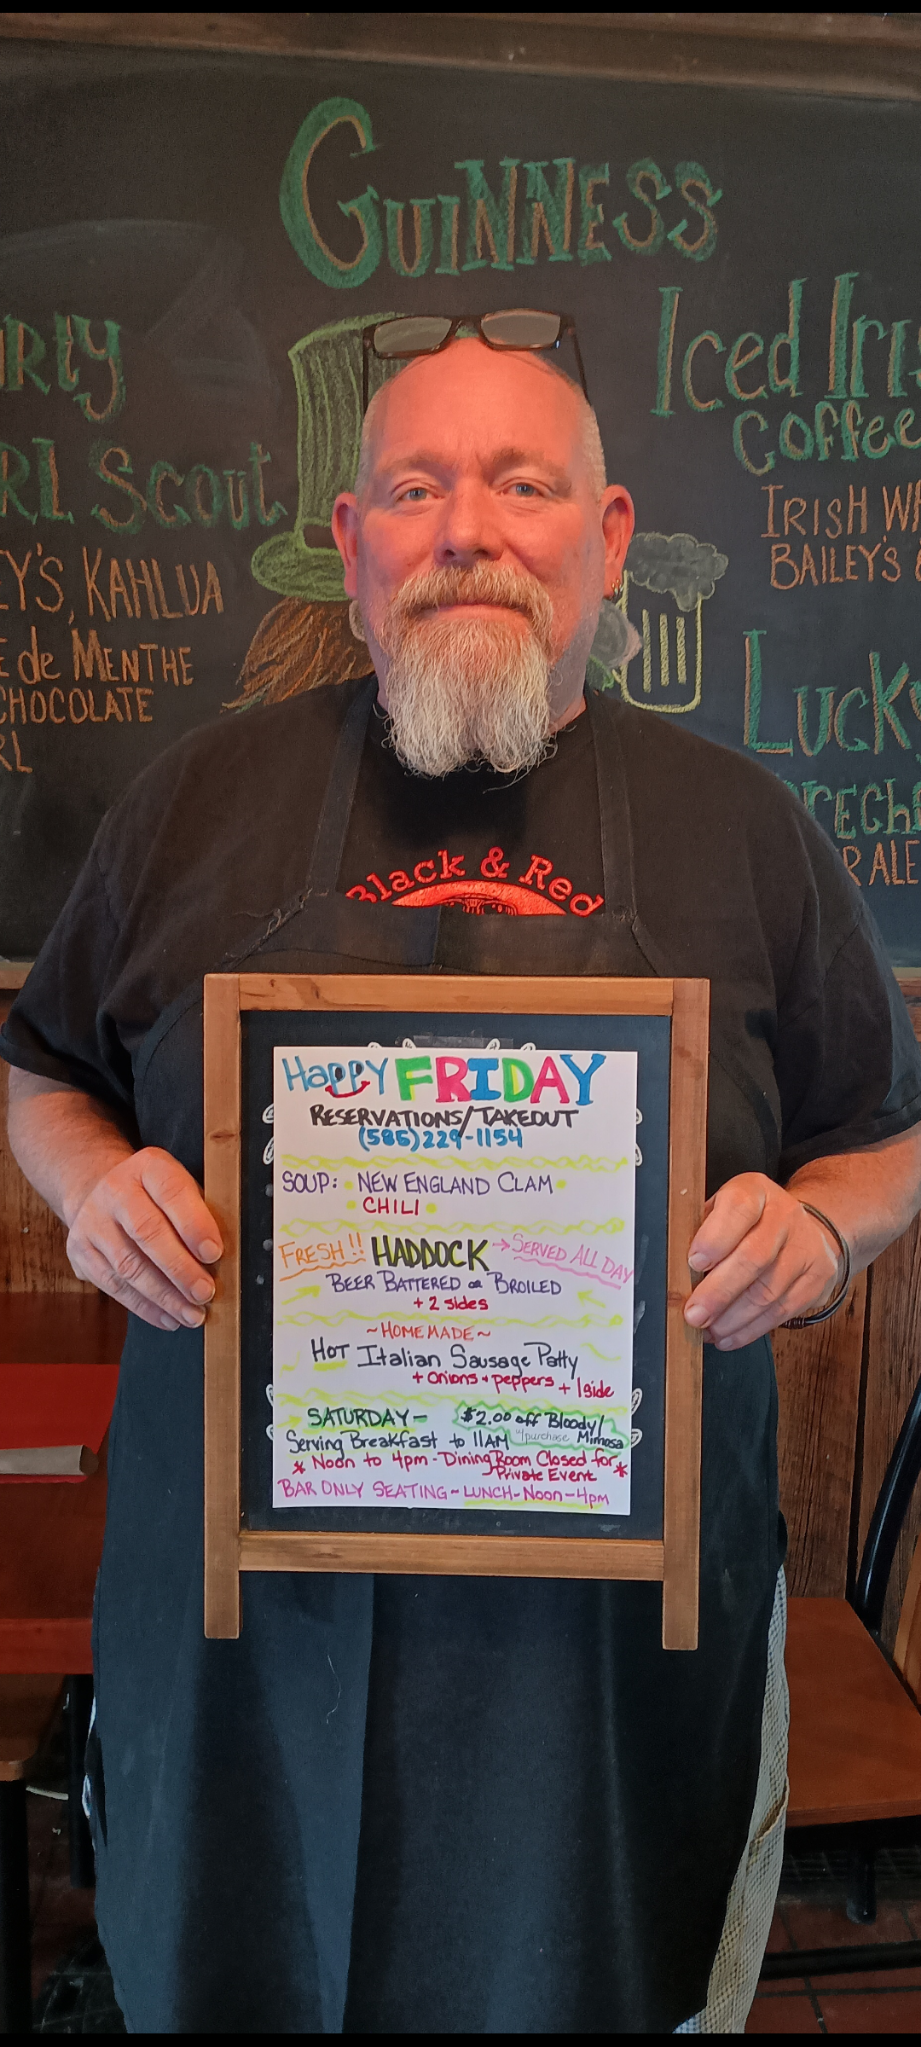 GUINNESS
Scout
KAHLUA
de MENTHE
CHOCOLATE
Iced
Coffee
IRISH
BAILEY'S
LUCKY
ALE
Black & Red
Happy FRIDAY
RESERVATIONS/TAKEOUT
(585)229-1154
SOUP: NEW ENGLAND CLAM
CHILI
FRESH!! HADDOCK → SERVED ALL DAY
BEER BATTERED or BROILED
+ 2 sides
~HOMEMADE~
HOT Italian Sausage Patty
+ onions + peppers + 1 side
SATURDAY -
Serving Breakfast to 11AM
$2.00 off Bloody/
w/purchase Mimosa
* Noon to 4pm - Dining Room Closed for
Private Event *
BAR ONLY SEATING ~ LUNCH - Noon - 4pm